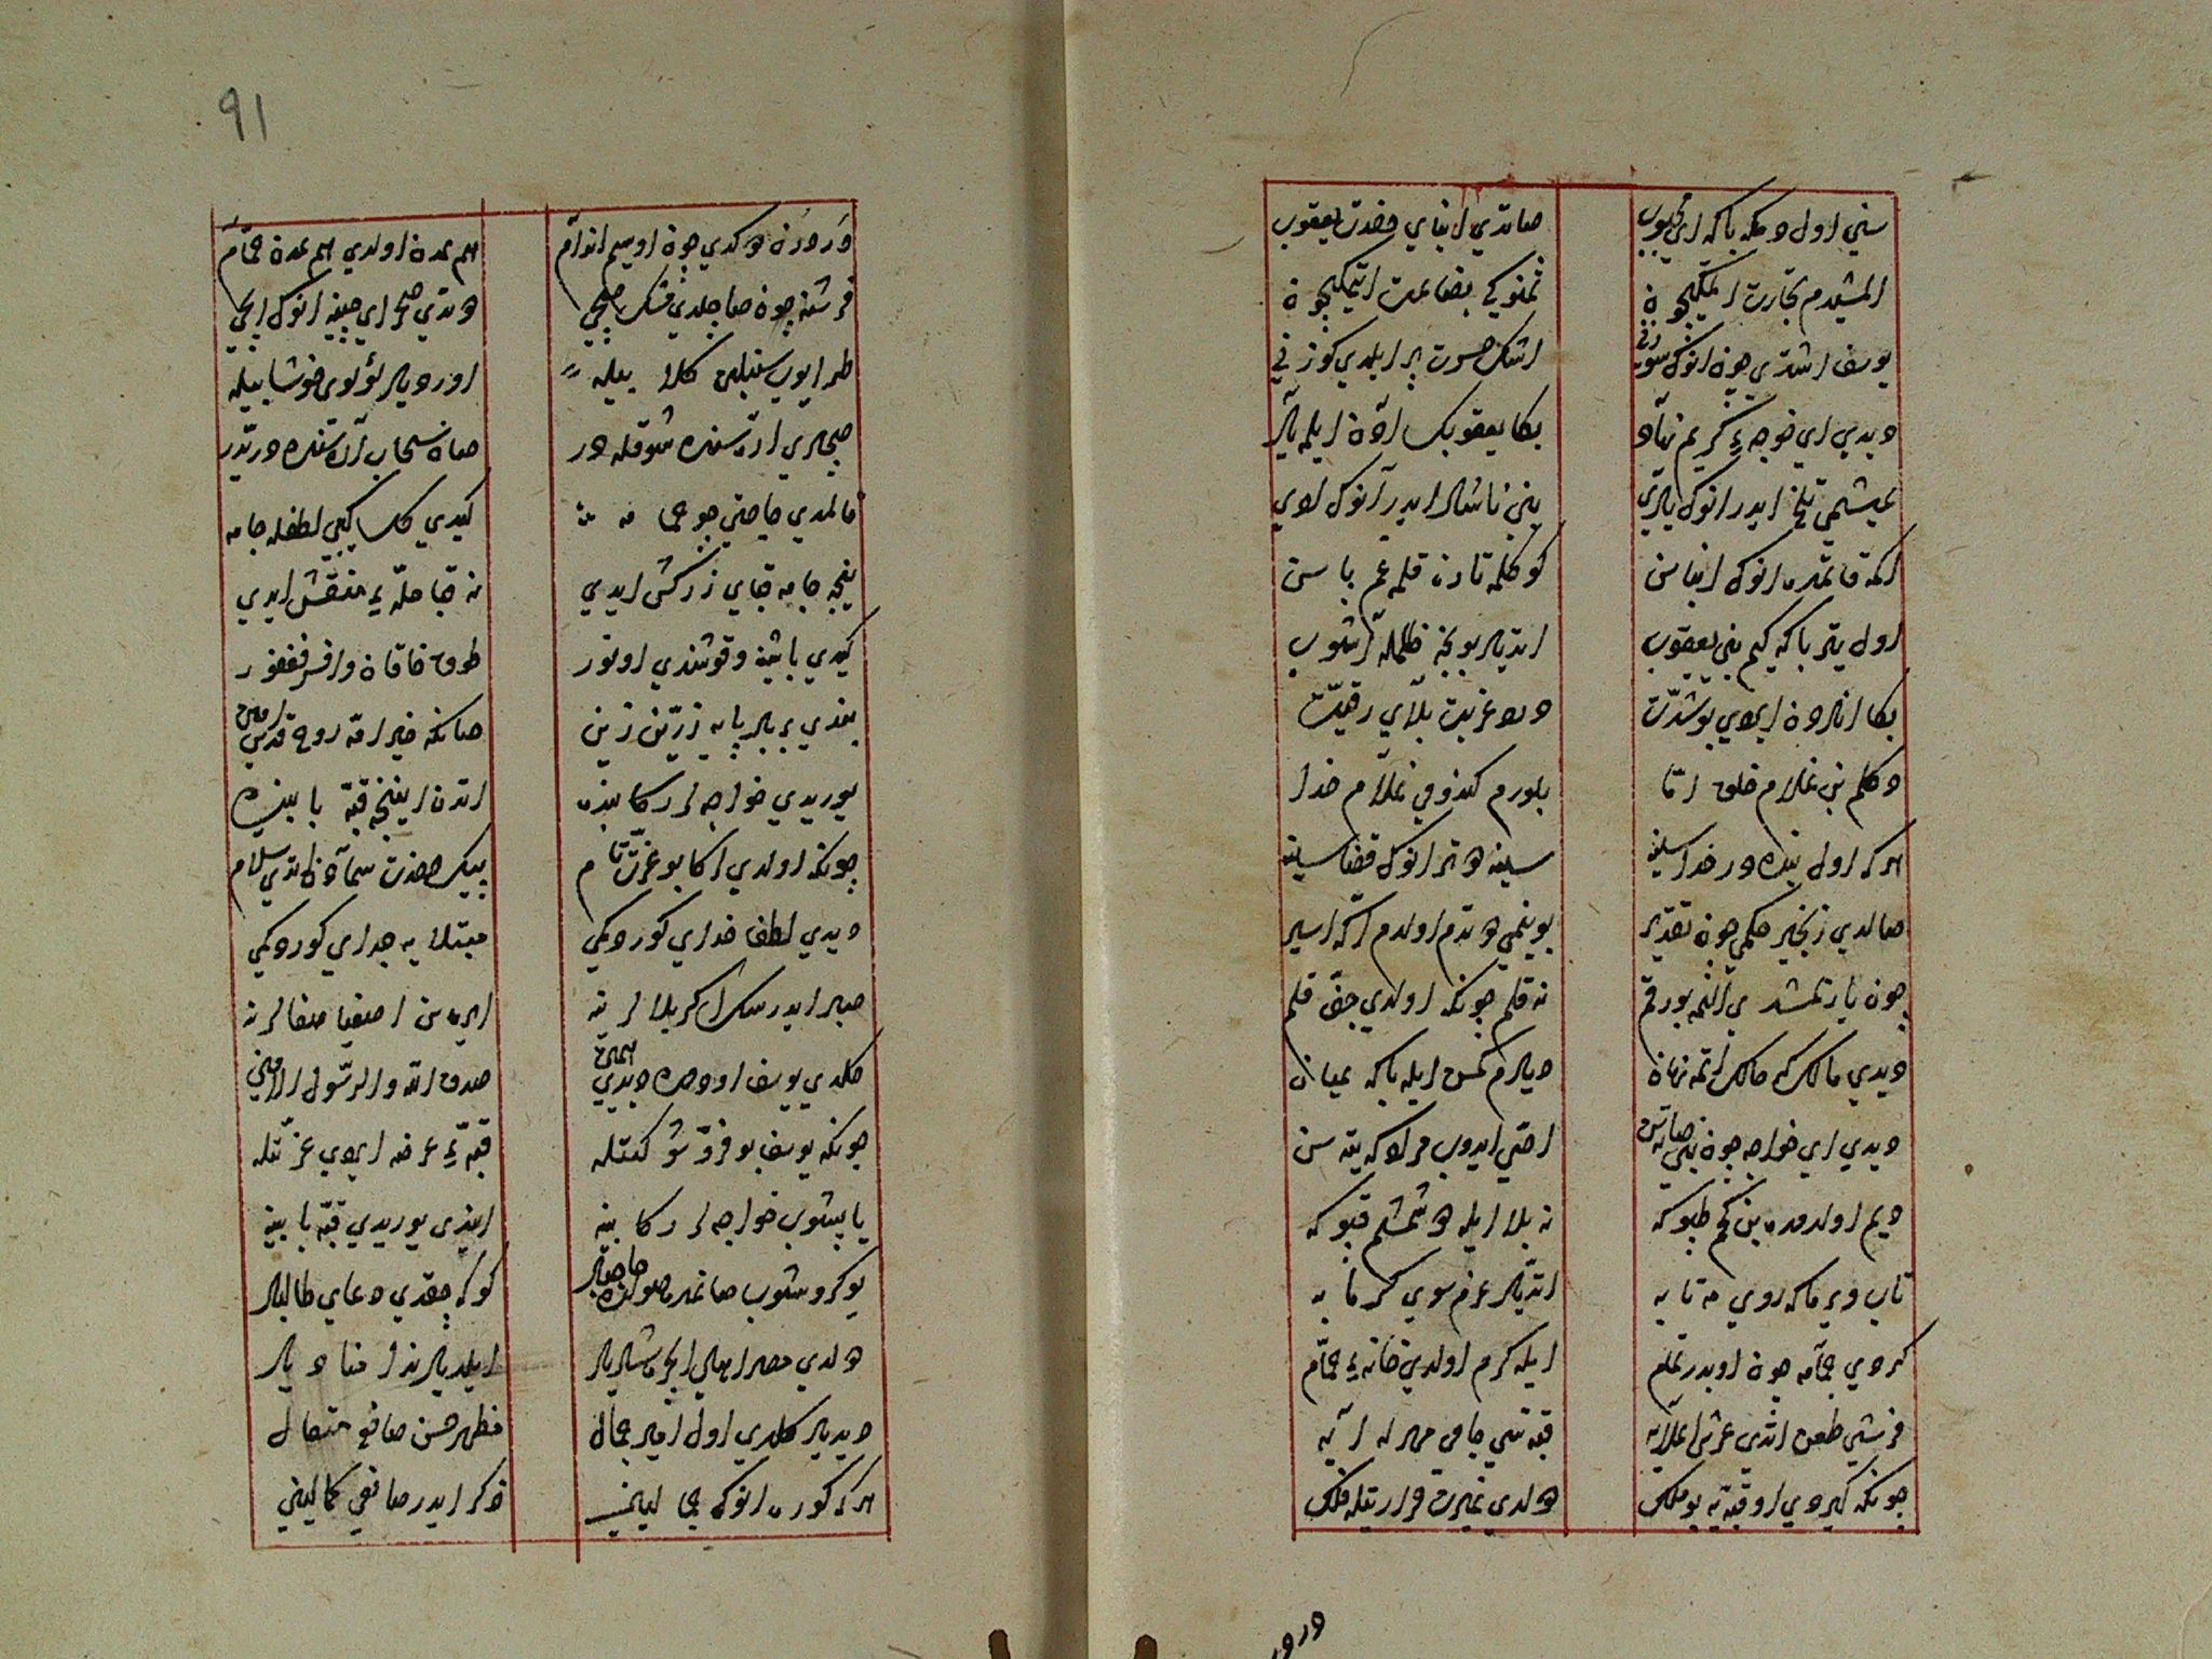 سني اول دمكه باكه اي محبوب صاتدي ابناي حضرت يعقوب
المشيدم تجارت ايتمكيچون ثمنوكي بضاعت ايتمكيچون
يوسف اشتدي چون انوك سوزني اشك حسرت پر ايلدي كوزني
ديدي اي خواجهء كريم نهاد بكا يعقوبك ادون ايله ياد
عيشمي تلخ ايدر انوك يادي بني ناشاد ايدر انوك ادي
اكه قاتمده انوك ابناسن كوكلمه تازه قلمه غم ياسن
اول يتر باكه كيم بني يعقوب اتديلر بونجه ظلمله اشوب
بكا انلردن ايردي بو شدت درد غربت بلاي رقيت
دكلم بن غلام خلق اما بلورم كندومي غلام خدا
هر كه اول بنده در خداسينه سينه دوتر انوك قضاسينه
صالدي زنجير حكمي چون تقدير بوينمي دوتدم اولدم اكه اسير
چون يازلمشدي النمه بو رقم نه قلم چونكه اولدي جف قلم
ديدي مالك كه حالك اتمه نهان ديلرم كمسن ايله باكه عيان
ديدي اي خواجه چون بني صاتسن احتي ايدوب مراد كه يتسن
ديم اولدمده بن كم طپوكه نه بلا ايله دوشمشم قپوكه
تاب ويرماكه روي مهتابه اتديلر عزم سوي كرمابه
كردي حمامه چون او بدر تمام ايله كرم اولدي خانهء حمام
فرشي طعن اتدي عرش اعلايه قبه سي جامي مهر له آيه
چونكه كيردي او قبه يه بو ملك دولدي غيرت حرارتيله فلك
درور
91
درودن چو كدي چون او سيم اندام هم عمده اولدي هم عمده حمام
فرشته چون صاچلدي مشك صچي دوتدي صحراي چينه انوك ايچي
طرايوب سنبلين كلاب ايله اوردلر لؤلؤي خوشاب ايله
صچلري ارسنده شوقله در صان سحاب ارسنده درتدر
قالمدي حاجتي چو حمامه كيدي كل كبي لطفله جامه
نيجه جامه قباي زركش ايدي نه قبا حلهء منقش ايدي
كيدي باشنه و قوشندي او نور طوق خاقان و افسر فغفور
بندي بر بادپايه زرين زين صانكه خير اته روح قدس امين
يوريدي خواجه لر ركابنده اتدن اينجه قبه بابنده
چونكه اولدي اكا بو عزت تام پيك حضرت سمادن اتدي سلام
ديدي لطف خدايي كوردكمي مبتلا يه جدايي كوردكمي
صبر ايدرسك اكر بلالرنه ايره سن اصفيا صفالرنه
كلدي يوسف اودمده ديدي همين صدق الله والرسول الامين
چونكه يوسف بو فر و شوكتله قبهء عرضه ايردي عزتله
ياپشوب خواجه لر ركابينه ايندي يوريدي قبه بابينه
يوكروشوب صاغده صولده حاجبلر كوكه چقدي دعاي طالبلر
دولدي مصر اهلي ايچره شهريار ايلديلر ندا منادیلر
ديديلر كلدي اول امير جمال مظهر حسن صانع متعال
هر كه كوره انوك جمالينى ذكر ايدر صانعي كمالينى